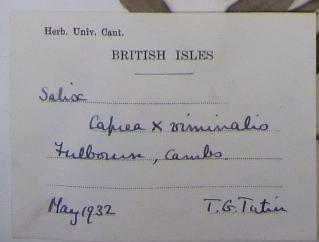 Herb. Univ. Cant.
BRITISH ISLES
Salix
Caprea x viminalis
Fulbourn, Cambs.
May 1932 T.G. Tutin